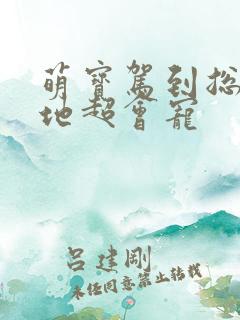 萌寶駕到总
地超會寵
呂建剛
未經同意禁止轉載